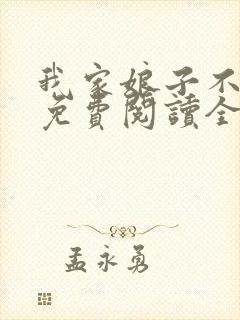 我家娘子不
免費閱讀全
孟永勇